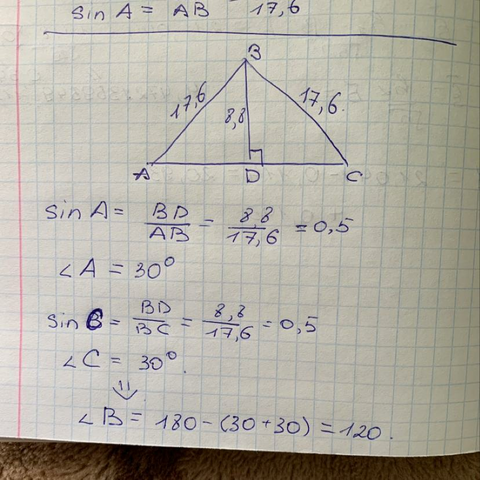 sin A = AB 17,6
B
17,6 8,8 17,6.
A D C
sin A = BD/AB = 8,8/17,6 = 0,5
∠A = 30°
sin C = BD/BC = 8,8/17,6 = 0,5
∠C = 30°.
⇓
∠B = 180 - (30 + 30) = 120.